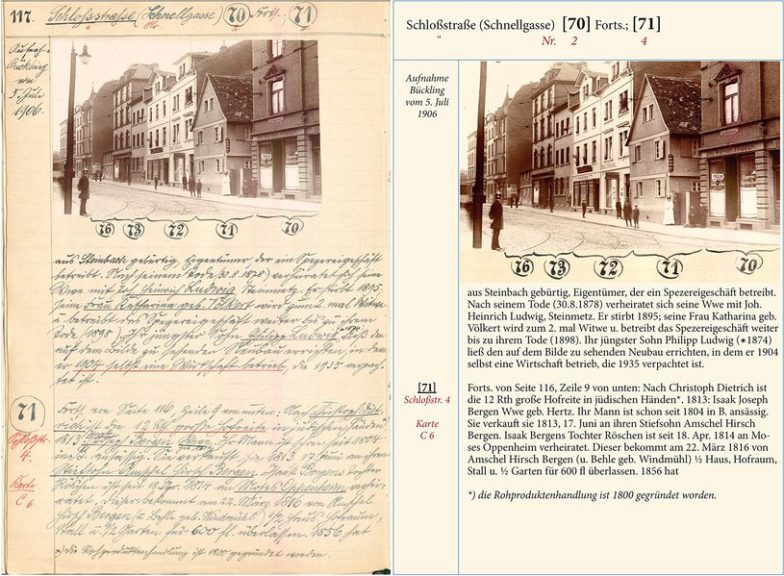 117. Schloßstrasse (Schnellgasse) 70 Forts.; 71
Aufnah-
me
Bückling
vom
5. Juli
1906.
76 73 72 71 70
aus Steinbach gebürtig, Eigentümer, der ein Spezereigeschäft
betreibt. Nach seinem Tode (30.8.1878) verheiratet sich seine
Wwe mit Joh. Heinrich Ludwig, Steinmetz. Er stirbt 1895;
seine Frau Katharina geb. Völkert wird zum 2. mal Witwe
u. betreibt das Spezereigeschäft weiter bis zu ihrem
Tode (1898). Ihr jüngster Sohn Philipp Ludwig ließ den
auf dem Bilde zu sehenden Neubau errichten, in dem
er 1904 selbst eine Wirtschaft betrieb, die 1935 verpach-
tet ist.
71
Schloßstr.
4.
Karte
C 6.
Forts. von Seite 116, Zeile 9 von unten: Nach Christoph Diet-
rich ist die 12 Rth große Hofreite in jüdischen Händen*.
1813: Bergen Wwe Ihr Mann ist schon seit 1804
in B. ansässig. Sie verkauft sie 1813, 17. Juni an ihren
Stiefsohn Amschel Hirsch Bergen. Isaak Bergens Tochter
Röschen ist seit 18. Apr. 1814 an Moses Oppenheim verhei-
ratet. Dieser bekommt am 22. März 1816 von Amschel
Hirsch Bergen (u. Behle geb. Windmühl) 1/2 Haus, Hofraum,
Stall u. 1/2 Garten für 600 fl. überlassen. 1856 hat
*) die Rohproduktenhandlung ist 1800 gegründet worden.
Schloßstraße (Schnellgasse) [70] Forts.; [71]
" Nr. 2 4
Aufnahme
Bückling
vom 5. Juli
1906
76 73 72 71 70
aus Steinbach gebürtig, Eigentümer, der ein Spezereigeschäft betreibt.
Nach seinem Tode (30.8.1878) verheiratet sich seine Wwe mit Joh.
Heinrich Ludwig, Steinmetz. Er stirbt 1895; seine Frau Katharina geb.
Völkert wird zum 2. mal Witwe u. betreibt das Spezereigeschäft weiter
bis zu ihrem Tode (1898). Ihr jüngster Sohn Philipp Ludwig (*1874)
ließ den auf dem Bilde zu sehenden Neubau errichten, in dem er 1904
selbst eine Wirtschaft betrieb, die 1935 verpachtet ist.
[71]
Schloßstr. 4
Karte
C 6
Forts. von Seite 116, Zeile 9 von unten: Nach Christoph Dietrich ist
die 12 Rth große Hofreite in jüdischen Händen*. 1813: Isaak Joseph
Bergen Wwe geb. Hertz. Ihr Mann ist schon seit 1804 in B. ansässig.
Sie verkauft sie 1813, 17. Juni an ihren Stiefsohn Amschel Hirsch
Bergen. Isaak Bergens Tochter Röschen ist seit 18. Apr. 1814 an Mo-
ses Oppenheim verheiratet. Dieser bekommt am 22. März 1816 von
Amschel Hirsch Bergen (u. Behle geb. Windmühl) ½ Haus, Hofraum,
Stall u. ½ Garten für 600 fl überlassen. 1856 hat
*) die Rohproduktenhandlung ist 1800 gegründet worden.